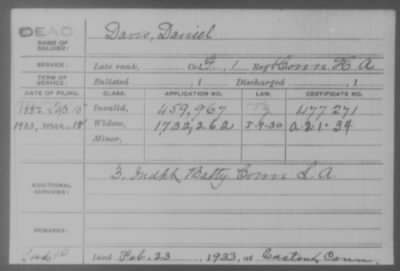 DEAD
NAME OF SOLDIER: Davis, Daniel
SERVICE: Late rank, Co. G, 1 Reg't Conn H A
TERM OF SERVICE: Enlisted , 1 Discharged , 1
DATE OF FILING. CLASS. APPLICATION NO. LAW. CERTIFICATE NO.
1882 Sep. 15 Invalid, 459,967 477,271
1933, Mar. 18 Widow, 1,732,262 5-9-30 a-21-34
Minor,
ADDITIONAL SERVICES: 3, Indpt Batty Conn L. A.
REMARKS:
Died Feb. 23, 1933, at Easton, Conn.